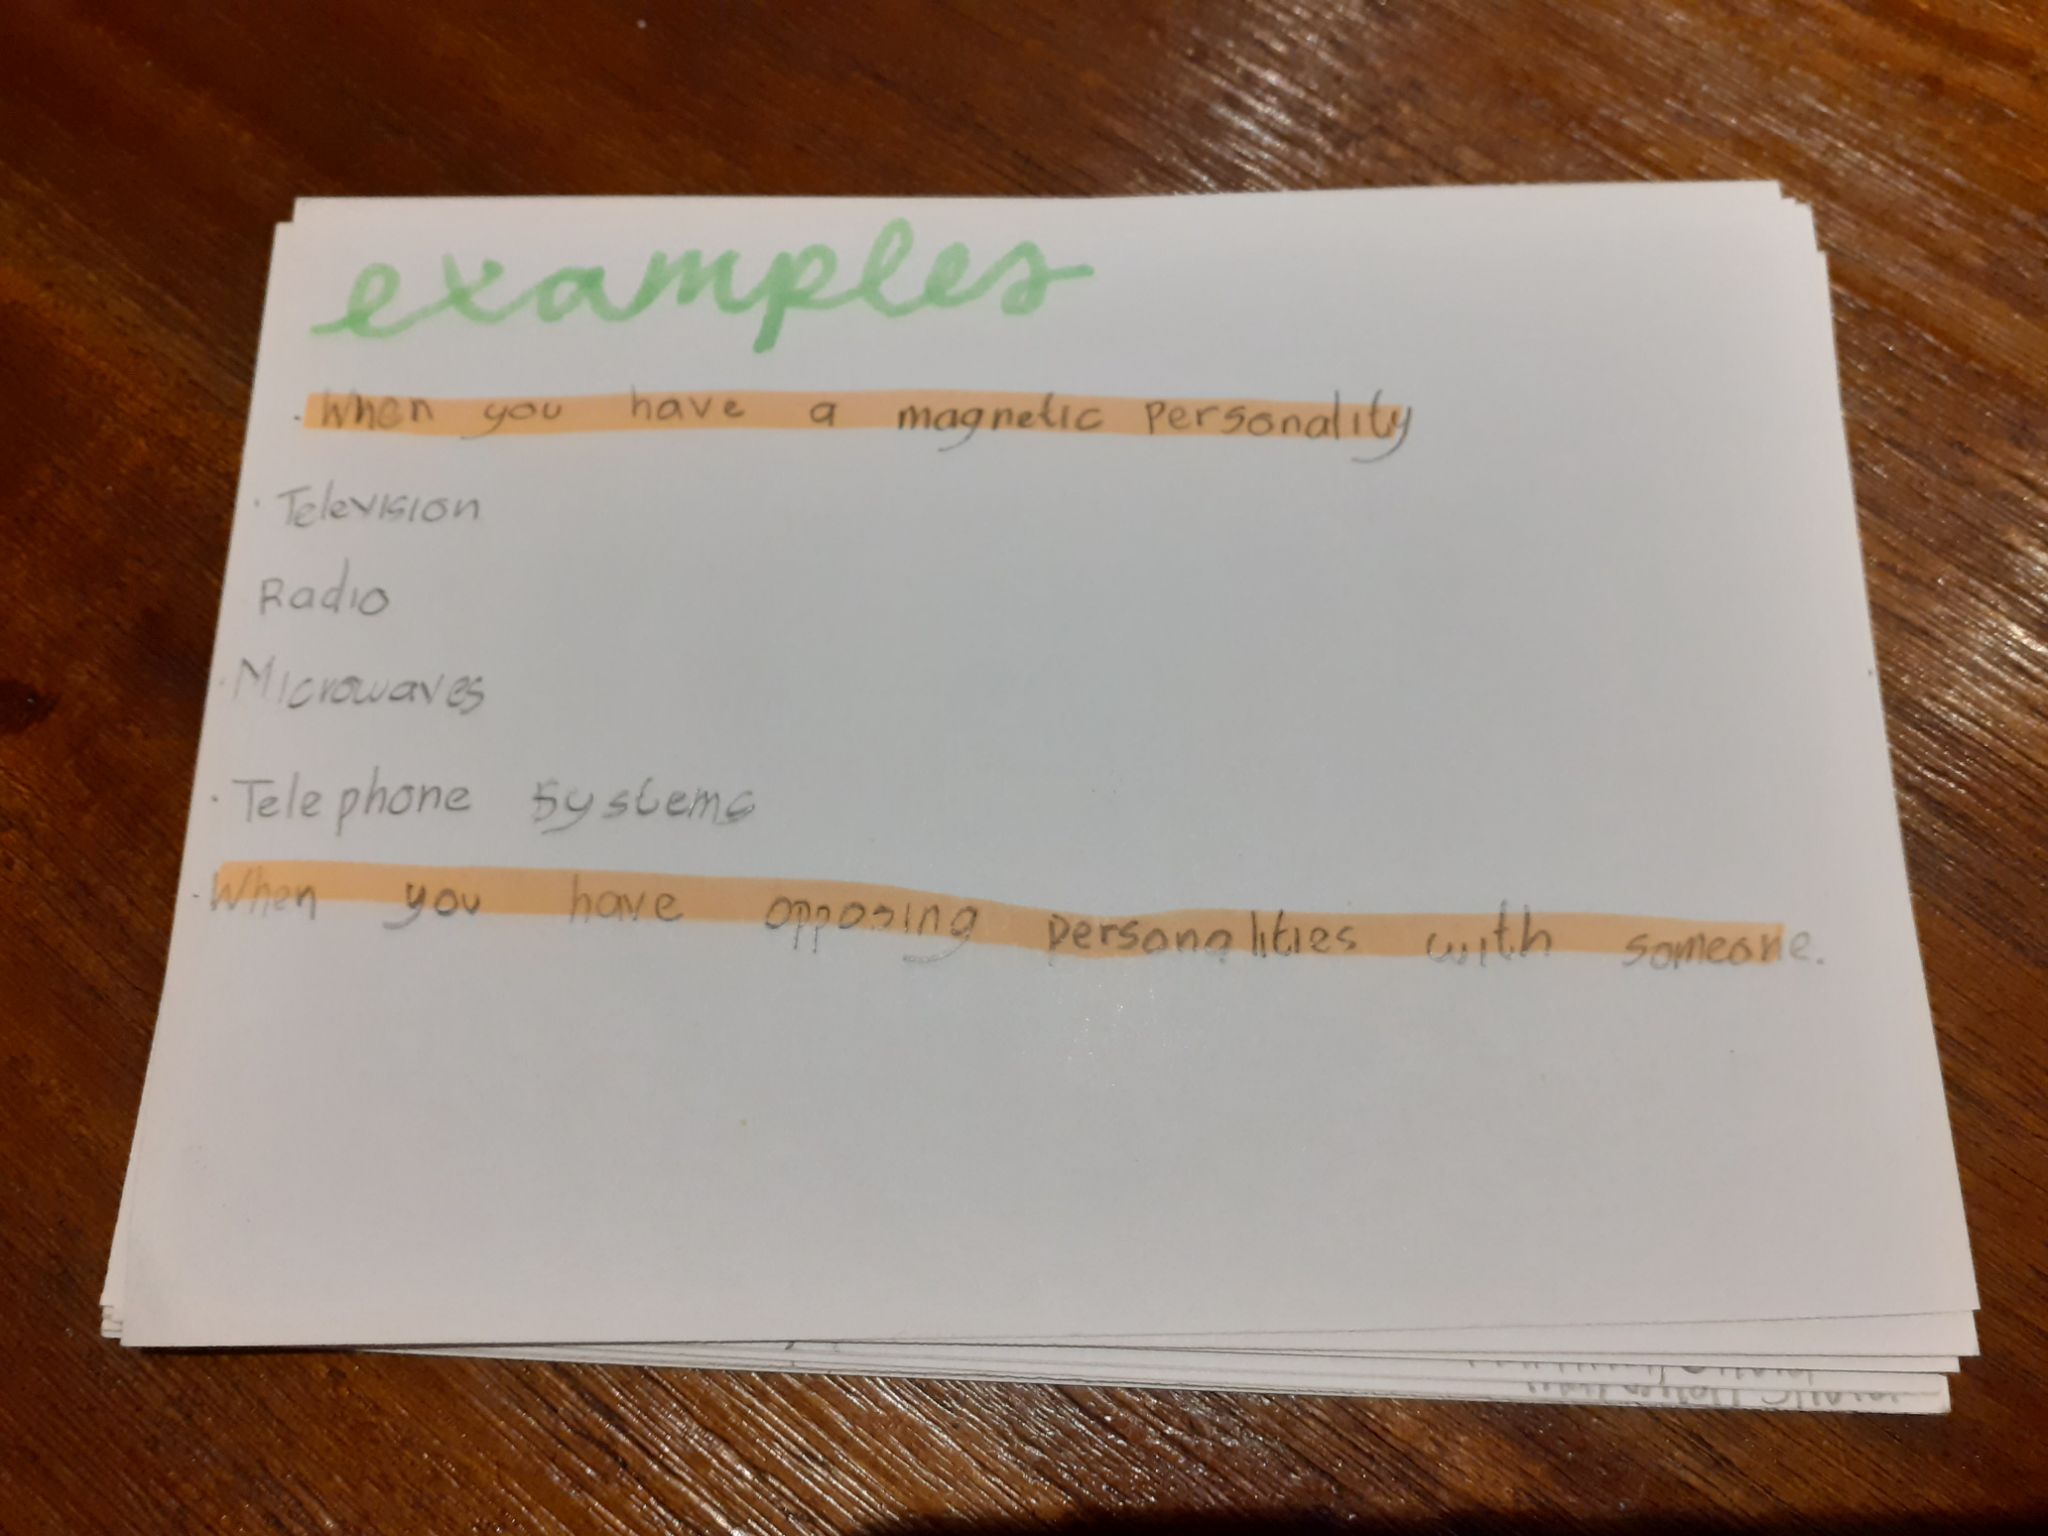 examples
· When you have a magnetic personality
· Television
Radio
· Microwaves
· Telephone Systems
· When you have opposing personalities with someone.